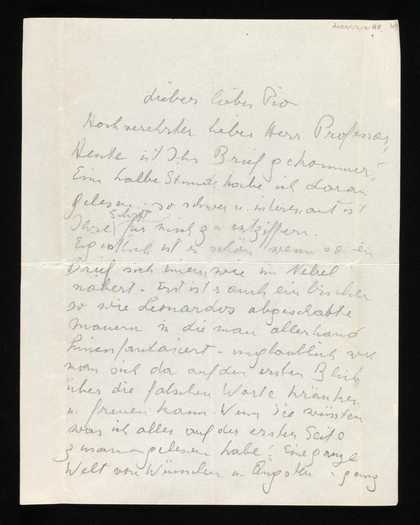 Lieber lieber Pio
Hochverehrter lieber Herr Professor,
Heute ist Ihr Brief gekommen,
Eine halbe Stunde habe ich daran
gelesen – so schwer u. interessant ist
Ihre Schrift für mich zu entziffern.
Eigentlich ist es schön wenn so ein
Brief sich einem wie im Nebel
nähert – Erst ist's auch ein bischen
so wie Leonardos abgeschabte
Mauern in die man allerhand
hineinfantasiert – unglaublich wie
man sich da auf den ersten Blick
über die falschen Worte kränken
u. freuen kann. Wenn Sie wüssten
was ich alles auf der ersten Seite
zusammengelesen habe! Eine ganze
Welt von Wünschen u. Ängsten – ganz